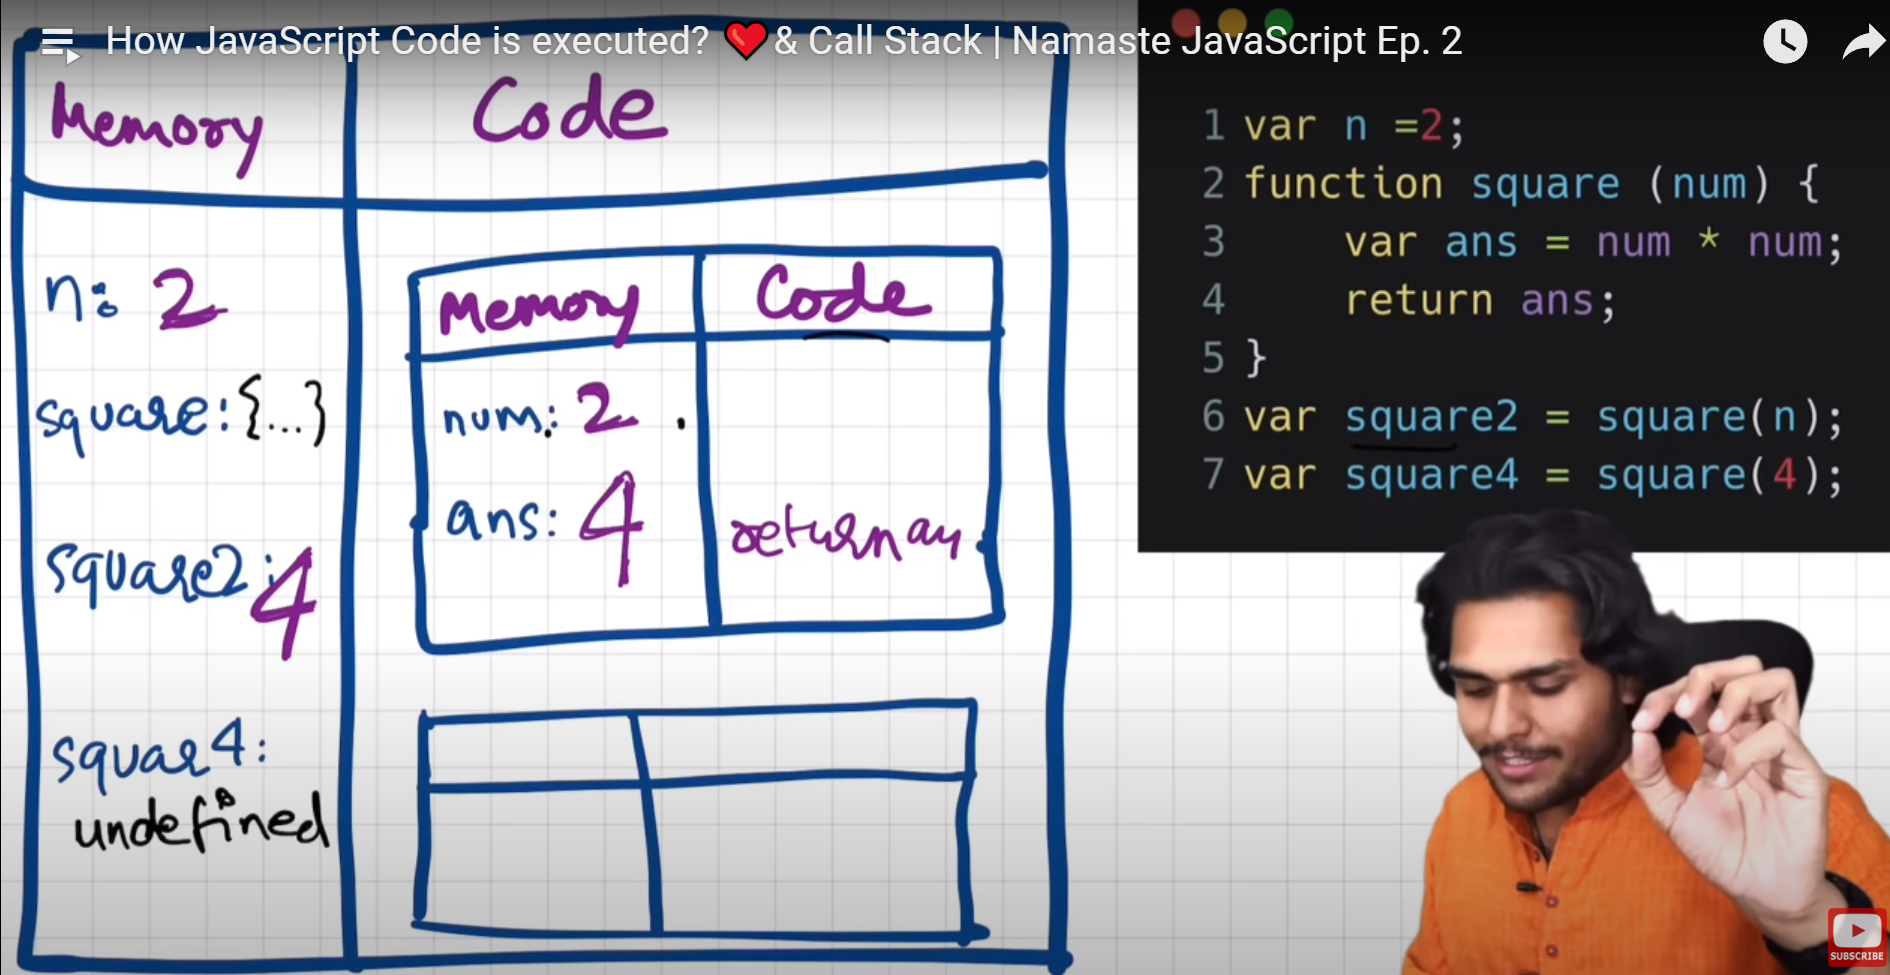 How JavaScript Code is executed? ❤️& Call Stack | Namaste JavaScript Ep. 2
Memory
Code
n: 2
square:{...}
square2: 4
squar4:
undefined
Memory
Code
num: 2
ans: 4
return an
1 var n =2;
2 function square (num) {
3 var ans = num * num;
4 return ans;
5 }
6 var square2 = square(n);
7 var square4 = square(4);
SUBSCRIBE